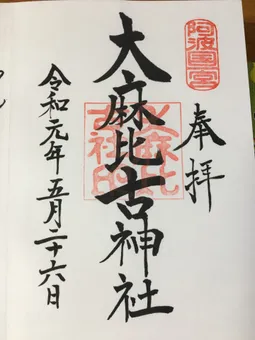 阿波國一宮
奉拝
大麻比古神社
大麻比古社印
令和元年五月二十六日